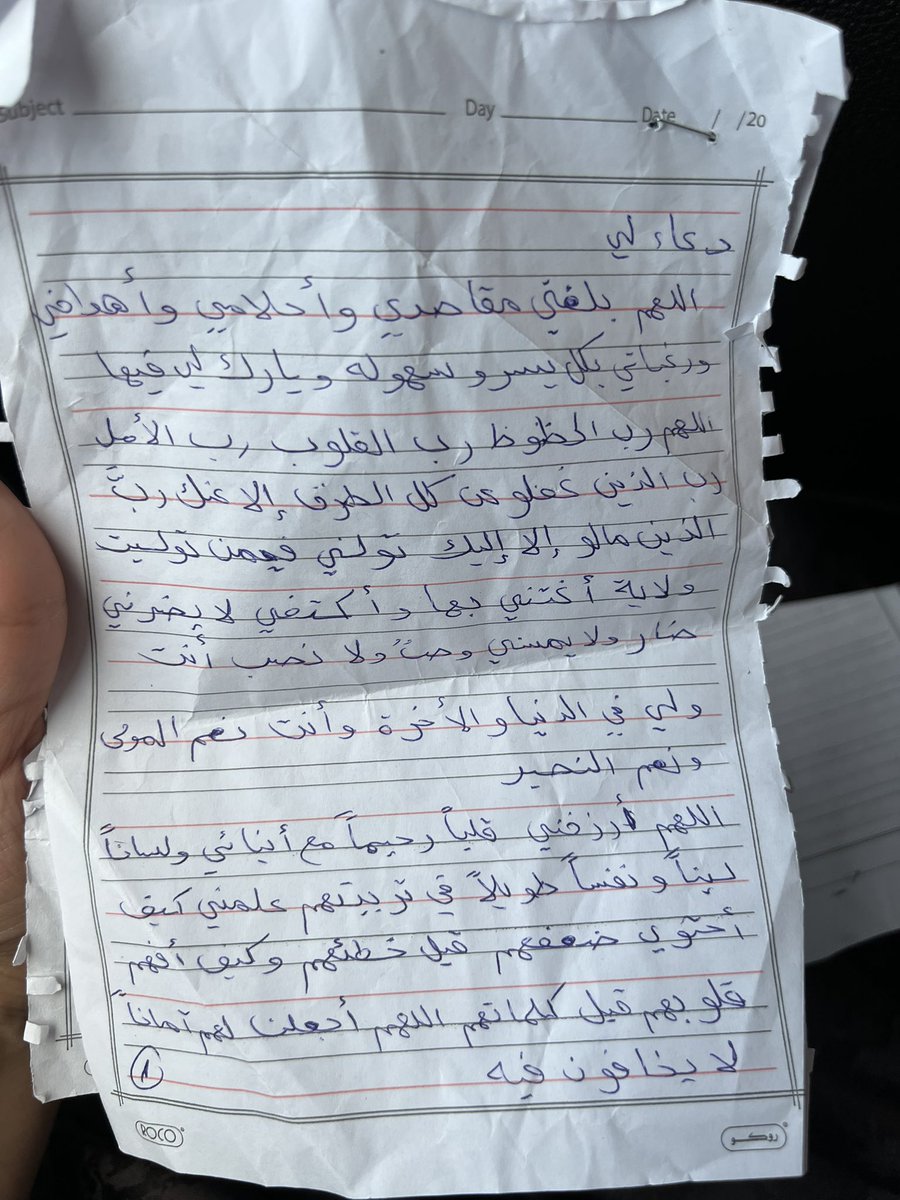 Subject Day Date / /20
دعاء لي
اللهم بلغني مقاصدي وأحلامي وأهدافي
ورغباتي بكل يسر و سهوله وبارك لي فيها
اللهم رب الحظوظ رب القلوب رب الأمل
رب الذين غفلو من كل الطرق إلا عنك ربَّ
الذين مالو إلا إليك تولني فيمن توليت
ولاية أغتني بها وأكتفي لا يضرني
ضار ولا يمسني وصبٌ ولا نصب أنت
ولي في الدنيا والأخرة وأنت نعم المولى
ونعم النصير
اللهم أرزقني قلباً رحيماً مع أبنائي ولساناً
ليناً ونفساً طويلاً في تربيتهم علمني كيف
أحتوي ضعفهم قبل خطئهم وكيف أفهم
قلوبهم قبل كلماتهم اللهم أجعلنا لهم آماناً
لا يخافون فيه
١
ROCO روكو